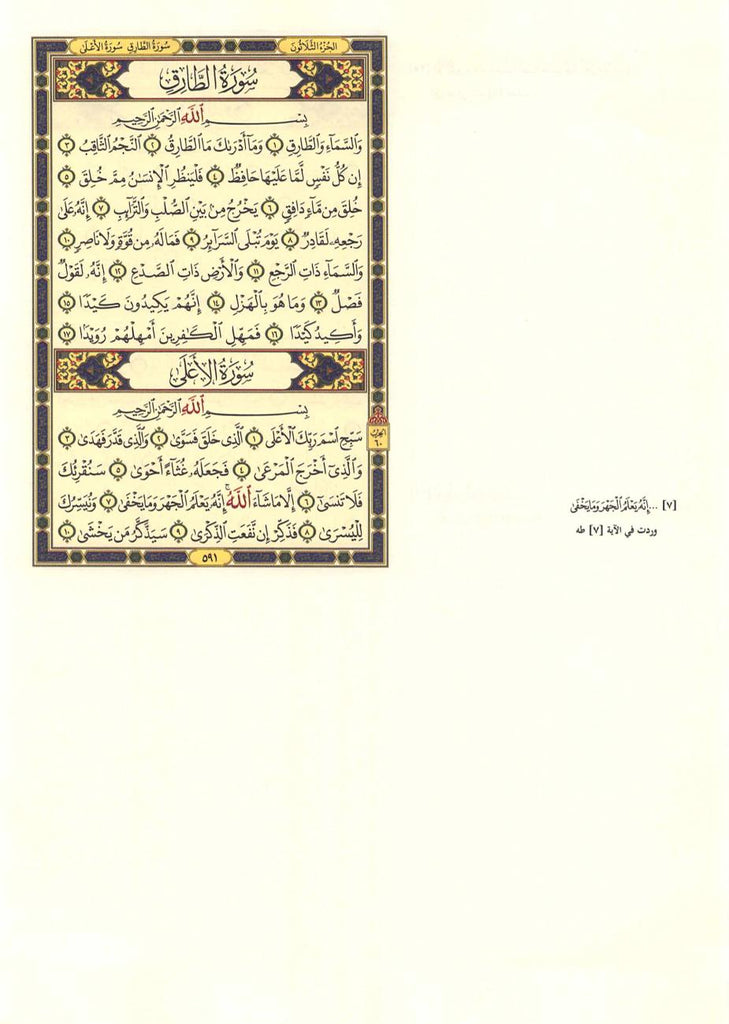 الجزء الثلاثون
سورة الطارق سورة الأعلى
سُورَةُ الطَّارِقِ
بِسْمِ اللَّهِ الرَّحْمَٰنِ الرَّحِيمِ
وَالسَّمَاءِ وَالطَّارِقِ ١ وَمَا أَدْرَىٰكَ مَا الطَّارِقُ ٢ النَّجْمُ الثَّاقِبُ ٣
إِن كُلُّ نَفْسٍ لَّمَّا عَلَيْهَا حَافِظٌ ٤ فَلْيَنظُرِ الْإِنسَٰنُ مِمَّ خُلِقَ ٥
خُلِقَ مِن مَّاءٍ دَافِقٍ ٦ يَخْرُجُ مِنۢ بَيْنِ الصُّلْبِ وَالتَّرَائِبِ ٧ إِنَّهُۥ عَلَىٰ
رَجْعِهِۦ لَقَادِرٌ ٨ يَوْمَ تُبْلَى السَّرَائِرُ ٩ فَمَا لَهُۥ مِن قُوَّةٍ وَلَا نَاصِرٍ ١٠
وَالسَّمَاءِ ذَاتِ الرَّجْعِ ١١ وَالْأَرْضِ ذَاتِ الصَّدْعِ ١٢ إِنَّهُۥ لَقَوْلٌ
فَصْلٌ ١٣ وَمَا هُوَ بِالْهَزْلِ ١٤ إِنَّهُمْ يَكِيدُونَ كَيْدًا ١٥
وَأَكِيدُ كَيْدًا ١٦ فَمَهِّلِ الْكَٰفِرِينَ أَمْهِلْهُمْ رُوَيْدًۢا ١٧
سُورَةُ الأَعْلَىٰ
بِسْمِ اللَّهِ الرَّحْمَٰنِ الرَّحِيمِ
سَبِّحِ اسْمَ رَبِّكَ الْأَعْلَى ١ الَّذِي خَلَقَ فَسَوَّىٰ ٢ وَالَّذِي قَدَّرَ فَهَدَىٰ ٣
وَالَّذِي أَخْرَجَ الْمَرْعَىٰ ٤ فَجَعَلَهُۥ غُثَاءً أَحْوَىٰ ٥ سَنُقْرِئُكَ
فَلَا تَنسَىٰ ٦ إِلَّا مَا شَاءَ اللَّهُ ۚ إِنَّهُۥ يَعْلَمُ الْجَهْرَ وَمَا يَخْفَىٰ ٧ وَنُيَسِّرُكَ
لِلْيُسْرَىٰ ٨ فَذَكِّرْ إِن نَّفَعَتِ الذِّكْرَىٰ ٩ سَيَذَّكَّرُ مَن يَخْشَىٰ ١٠
الحزب
٦٠
٥٩١
[٧] ...إِنَّهُۥ يَعْلَمُ الْجَهْرَ وَمَا يَخْفَىٰ
وردت في الآية [٧] طه